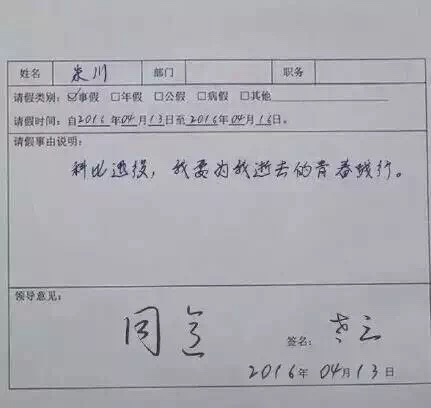 姓名 部门 职务
请假类别：☑事假 □年假 □公假 □病假 □其他
请假时间：自2016年04月13日至2016年04月16日。
请假事由说明：
科比退役，我要为我逝去的青春践行。
领导意见：
同意 签名：
2016年04月13日